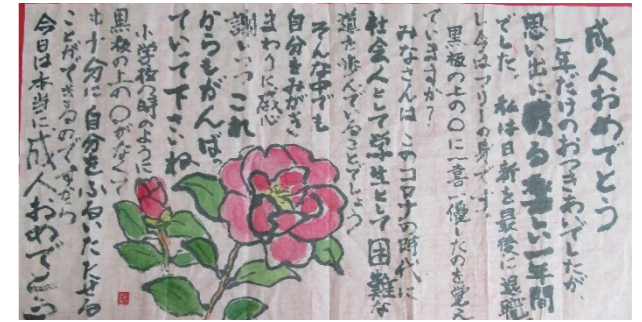 成人おめでとう
一年だけのおつきあいでしたが、
思い出に残る楽しい一年間
でした。私は日新を最後に退職
し今はフリーの身です。
黒板の上の○に一喜一憂したのを覚え
ていますか?
みなさんは このコロナの時代に
社会人として学生として困難な
道を歩んでいることでしょう
そんな中でも
自分をみがき
まわりに感心
謝しつつこれ
からもがんば
ていって下さいね
小学校の時のように
黒板の上の○がなくて
も十分に自分をふるいたたせる
ことができるのですから
今日は本当に成人おめでとう